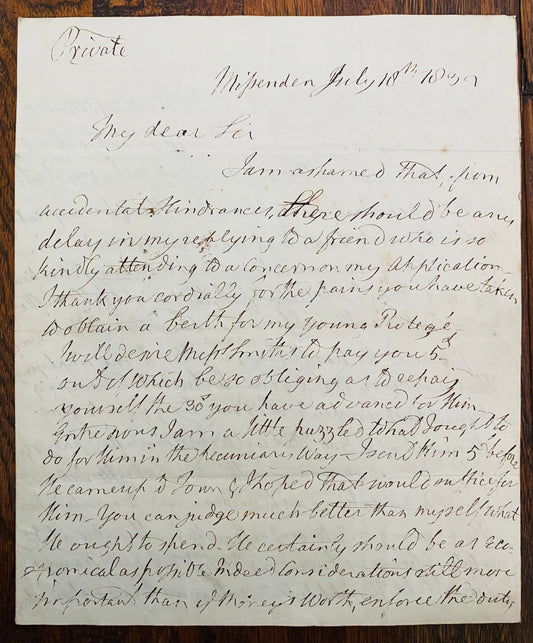 Private
Missenden July 18th 1832
My dear Sir
I am ashamed that, from
accidental Hindrances, there should be any
delay in my replying to a friend who is so
kindly attending to a concern on my Application_
I thank you cordially for the pains you have taken
to obtain a berth for my young Protegé_
I will desire Messrs Smiths to pay you 5£
out of which be so obliging as to repay
yourself the 30s you have advanced for Him_
I am a little puzzled to what I ought to
do for Him in the pecuniary Way_ I sent Him 5£ before
He came up to Town & I hoped that would suffice for
Him_ You can judge much better than myself what
He ought to spend_ He certainly should be as Eco-
nomical as possible Indeed Considerations still more
important than if Money's Worth, enforce the duty